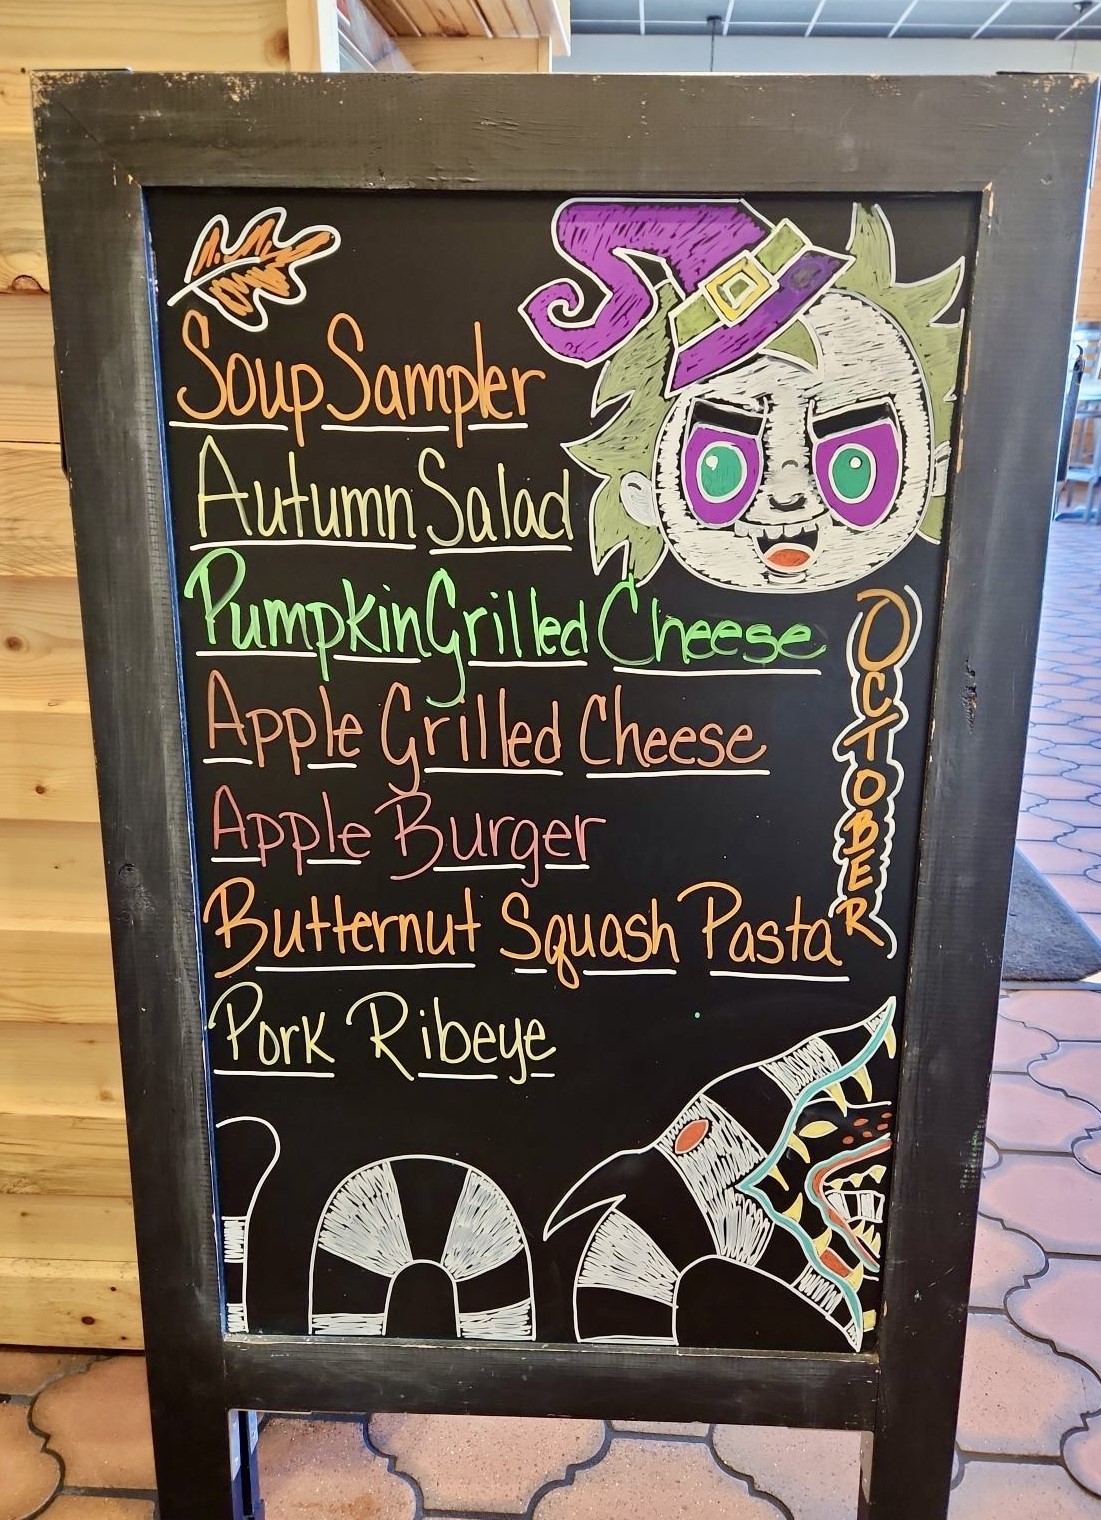 Soup Sampler
Autumn Salad
Pumpkin Grilled Cheese
Apple Grilled Cheese
Apple Burger
Butternut Squash Pasta
Pork Ribeye
OCTOBER